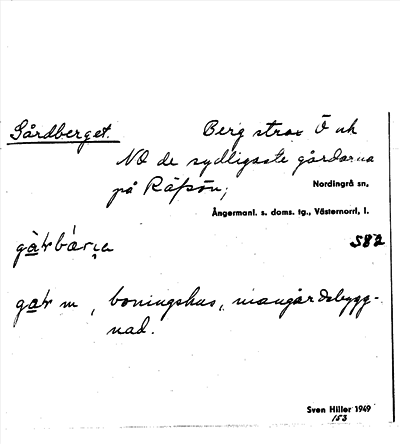 Gårdberget. Berg strax Ö och
NO de sydligaste gårdarna
på Räfsön; Nordingrå sn,
Ångermanl. s. doms. tg., Västernorrl, l.
582
gat m, boningshus, mangårdsbygg-
nad.
Sven Hiller 1949
153